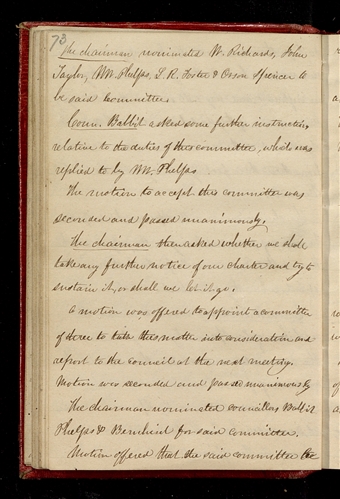 73
The chairman nominated W. Richards, John
Taylor, WW. Phelps, L. R. Foster & Orson Spencer to
be said committee.
Coun. Babbit asked some further instruction
relation to the duties of this committee, which was
replied to by WW. Phelps
The motion to accept this committee was
seconded and passed unanimously.
The chairman then asked whether we shall
take any further notice of our charter and try to
sustain it, or shall we let it go.
A motion was offered to appoint a committee
of three to take this matter into consideration and
report to the council at the next meeting.
Motion was seconded and passed unanimously
The chairman nominated councillors Babbit
Phelps & Bernhisel for said committee.
Motion offered that the said committee be